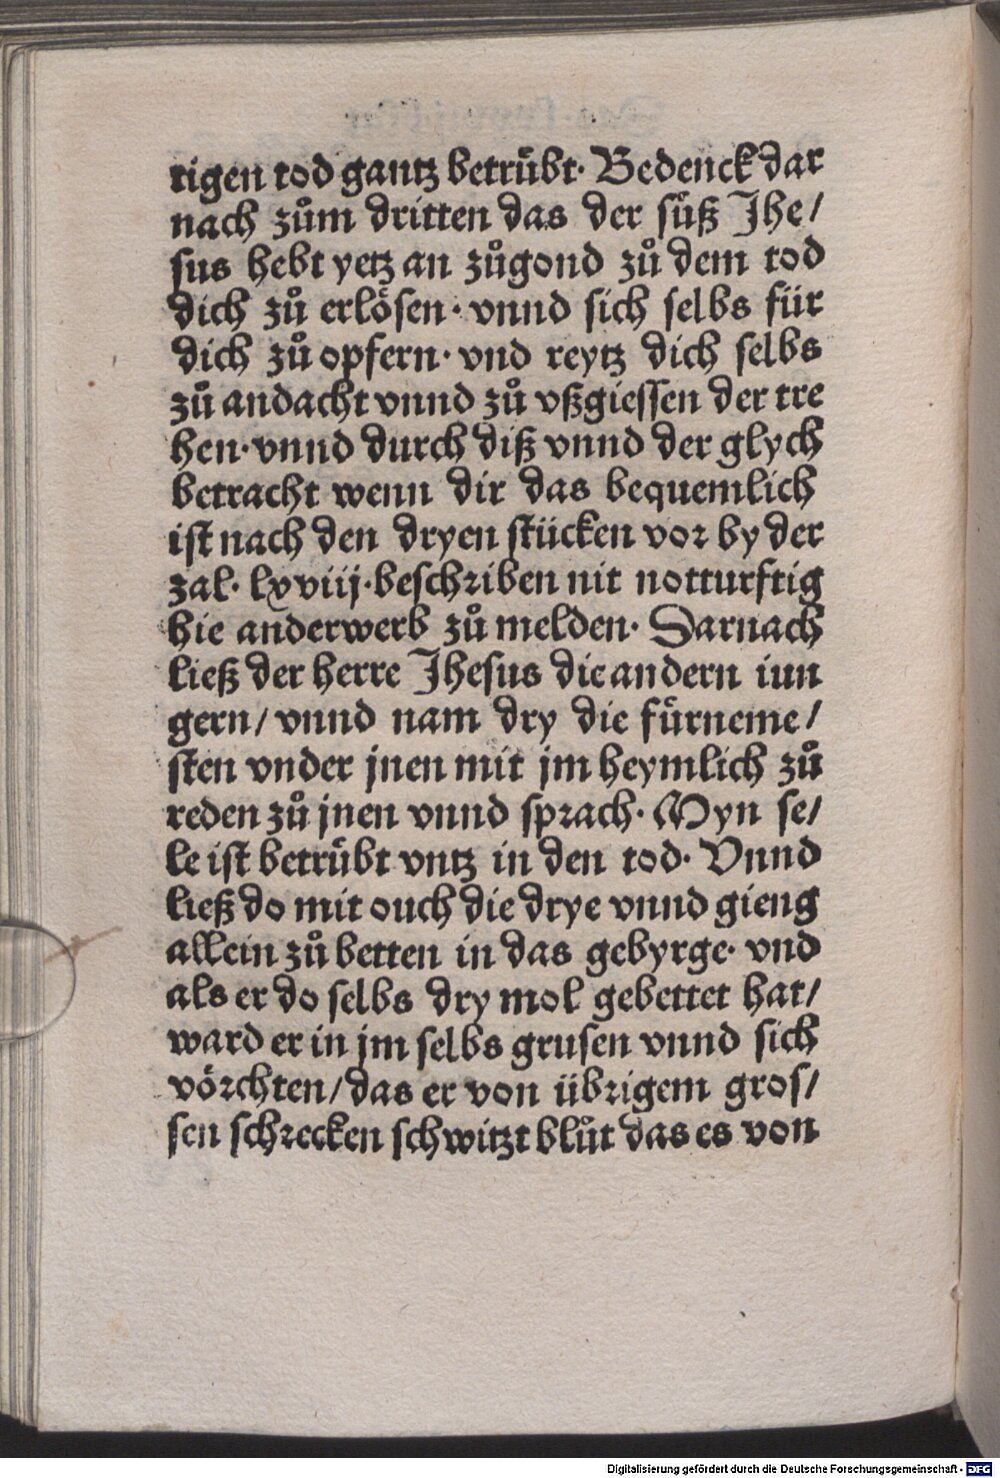 tigen tod gantz betruͤbt· Bedenck dar
nach zuͦm dritten das der suͤß Jhe/
sus hebt yetz an zuͦgond zuͦ dem tod
dich zuͦ erloͤsen· vnnd sich selbs für
dich zuͦ opfern· vnd reytz dich selbs
zuͦ andacht vnnd zuͦ vßgiessen der tre
hen· vnnd durch diß vnnd der glych
betracht wenn dir das bequemlich
ist nach den dryen stücken vor by der
zal· lxviij· beschriben nit notturftig
hie anderwerb zuͦ melden· Darnach
ließ der herre Jhesus die andern iun
gern/ vnnd nam dry die fuͤrneme/
sten vnder jnen mit jm heymlich zuͦ
reden zuͦ jnen vnnd sprach· Myn se/
le ist betruͤbt vntz in den tod· Vnnd
ließ do mit ouch die drye vnnd gieng
allein zuͦ betten in das gebyrge· vnd
als er do selbs dry mol gebettet hat/
ward er in jm selbs grusen vnnd sich
voͤrchten/ das er von übrigem gros/
sen schrecken schwitzt bluͦt das es von
Digitalisierung gefördert durch die Deutsche Forschungsgemeinschaft - DFG